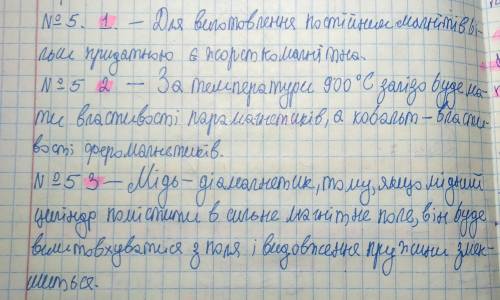 № 5. 1. – Для виготовлення постійних магнітів бі-
льш придатною є жорсткомагнітна.
№ 5 2 – За температури 900°С залізо буде ма-
ти властивості парамагнетиків, а кобальт – власти-
вості феромагнетиків.
№ 5 3 – Мідь – діамагнетик, тому, якщо мідний
циліндр помістити в сильне магнітне поле, він буде
виштовхуватися з поля і видовження пружини змен-
шиться.